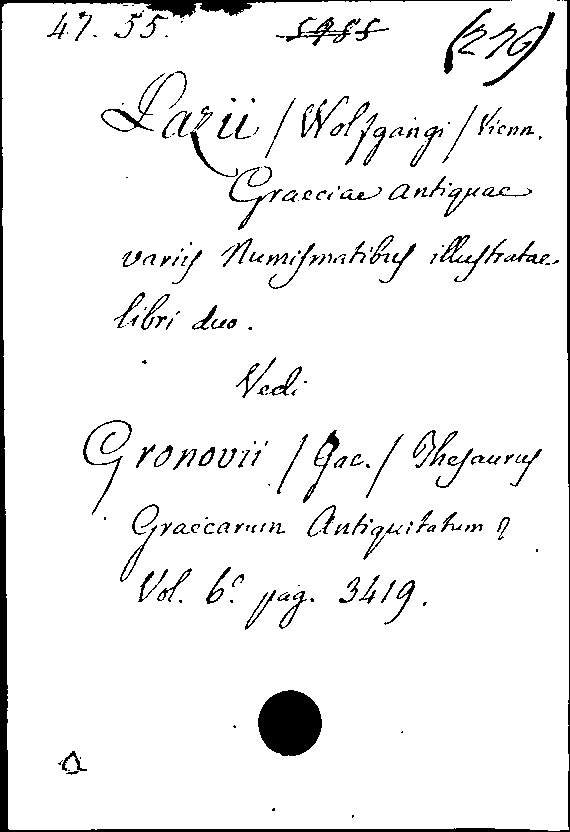 47. 55. 5985 (276)
Lazii / Wolfgangi / Vienn.
Graeciae antiquae
variis Numismatibus illustratae
libri duo.
Vedi
Gronovii / Jac. / Thesaurus
Graecarum Antiquitatum
Vol. 6.º pag. 3419.